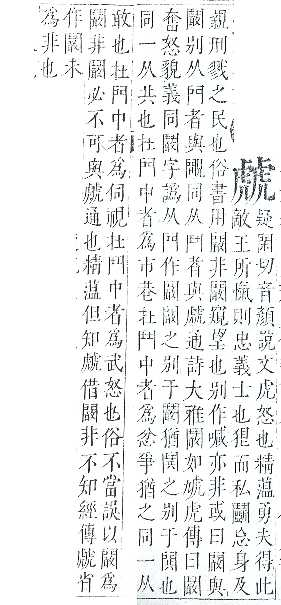 虤
疑闌切音顏說文虎怒也精薀勇夫得此
敵王所愾則忠義士也狃而私鬭忘身及
親刑戮之民也俗書用闞非闞窺望也別作喊亦非或曰闞與
闞別从門者與矙同从鬥者與虤通詩大雅闞如虓虎傳曰闞
奮怒貌義同闞字譌从門作闞闞之別于闞猶鬨之別于閧也
同一从共也在門中者為市巷在鬥中者為忿爭猶之同一从
敢也在門中者為伺視在鬥中者為武怒也俗不當誤以闞為
闞非闞必不可與虤通也精薀但知虤借闞非不知經傳虤省
作闞未
為非也